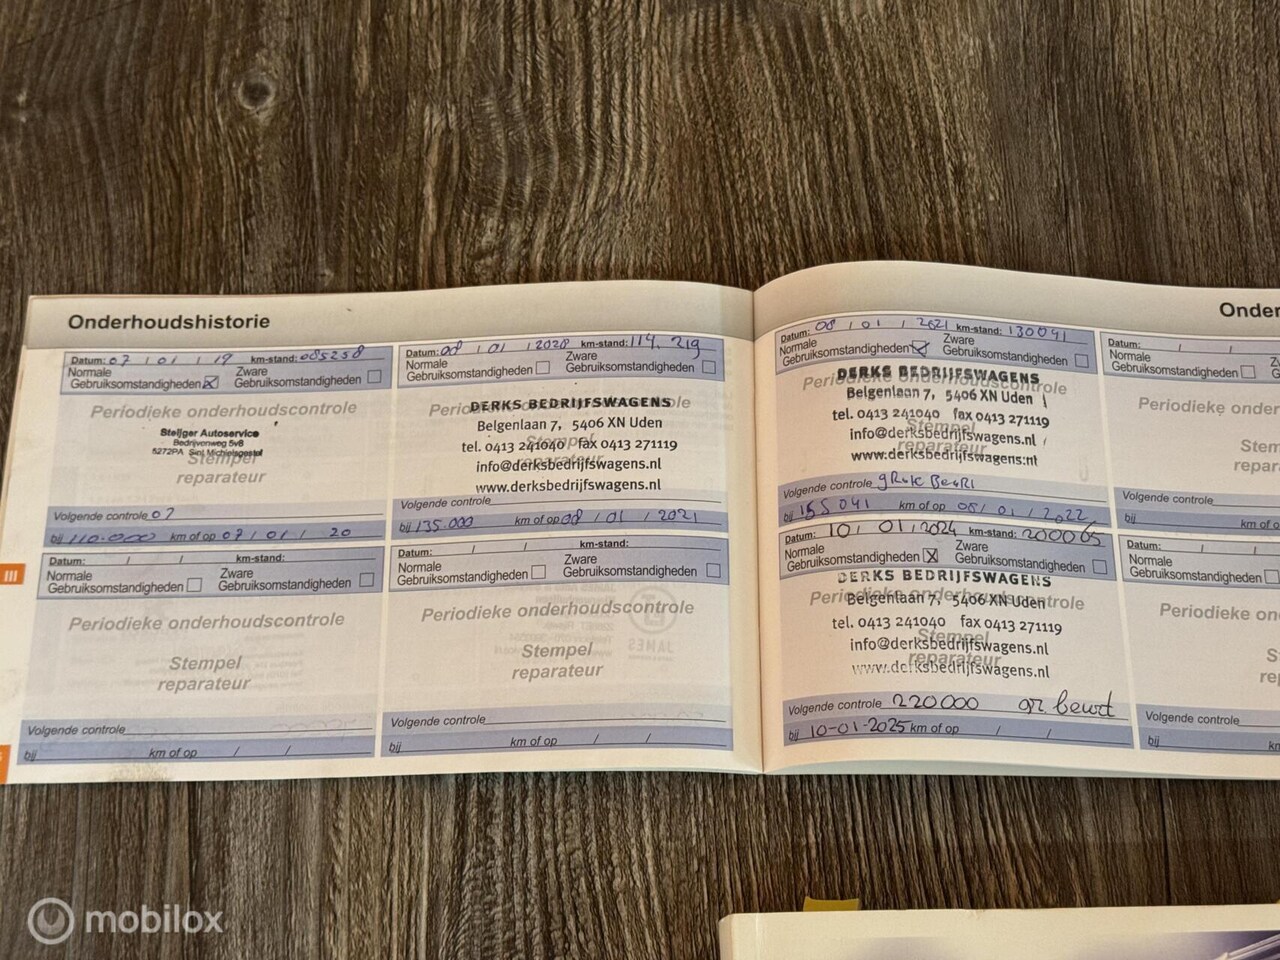 Onderhoudshistorie
Datum: 07 / 01 / 19 km-stand: 085258
Normale Gebruiksomstandigheden ☒ Zware Gebruiksomstandigheden ☐
Periodieke onderhoudscontrole
Steijger Autoservice
Bedrijvenweg 5v8
5272PA Sint Michielsgestel
Stempel
reparateur
Volgende controle 07
bij 110.000 km of op 07 / 01 / 20
Datum: / / km-stand:
Normale Gebruiksomstandigheden ☐ Zware Gebruiksomstandigheden ☐
Periodieke onderhoudscontrole
Stempel
reparateur
Volgende controle
bij km of op / /
Datum: 08 / 01 / 2020 km-stand: 114.219
Normale Gebruiksomstandigheden ☐ Zware Gebruiksomstandigheden ☐
Periodieke onderhoudscontrole
DERKS BEDRIJFSWAGENS
Belgenlaan 7, 5406 XN Uden
tel. 0413 241040 fax 0413 271119
Stempel
info@derksbedrijfswagens.nl
reparateur
www.derksbedrijfswagens.nl
Volgende controle
bij 135.000 km of op 08 / 01 / 2021
Datum: / / km-stand:
Normale Gebruiksomstandigheden ☐ Zware Gebruiksomstandigheden ☐
Periodieke onderhoudscontrole
Stempel
reparateur
Volgende controle
bij km of op / /
Datum: 08 / 01 / 2021 km-stand: 130091
Normale Gebruiksomstandigheden ☑ Zware Gebruiksomstandigheden ☐
Periodieke onderhoudscontrole
DERKS BEDRIJFSWAGENS
Belgenlaan 7, 5406 XN Uden
tel. 0413 241040 fax 0413 271119
Stempel
info@derksbedrijfswagens.nl
reparateur
www.derksbedrijfswagens.nl
Volgende controle gRote Beurt
bij 155041 km of op 08 / 01 / 2022
Datum: 10 / 01 / 2024 km-stand: 200005
Normale Gebruiksomstandigheden ☒ Zware Gebruiksomstandigheden ☐
Periodieke onderhoudscontrole
DERKS BEDRIJFSWAGENS
Belgenlaan 7, 5406 XN Uden
tel. 0413 241040 fax 0413 271119
Stempel
info@derksbedrijfswagens.nl
reparateur
www.derksbedrijfswagens.nl
Volgende controle 220000 gr beurt
bij 10-01-2025 km of op / /
Onder
Datum: /
Normale
Gebruiksomstandigheden
Periodieke onder
Stem
repara
Volgende controle
bij km of o
Datum: /
Normale
Gebruiksomstandigheden
Periodieke onder
S
re
Volgende controle
bij km
III
mobilox